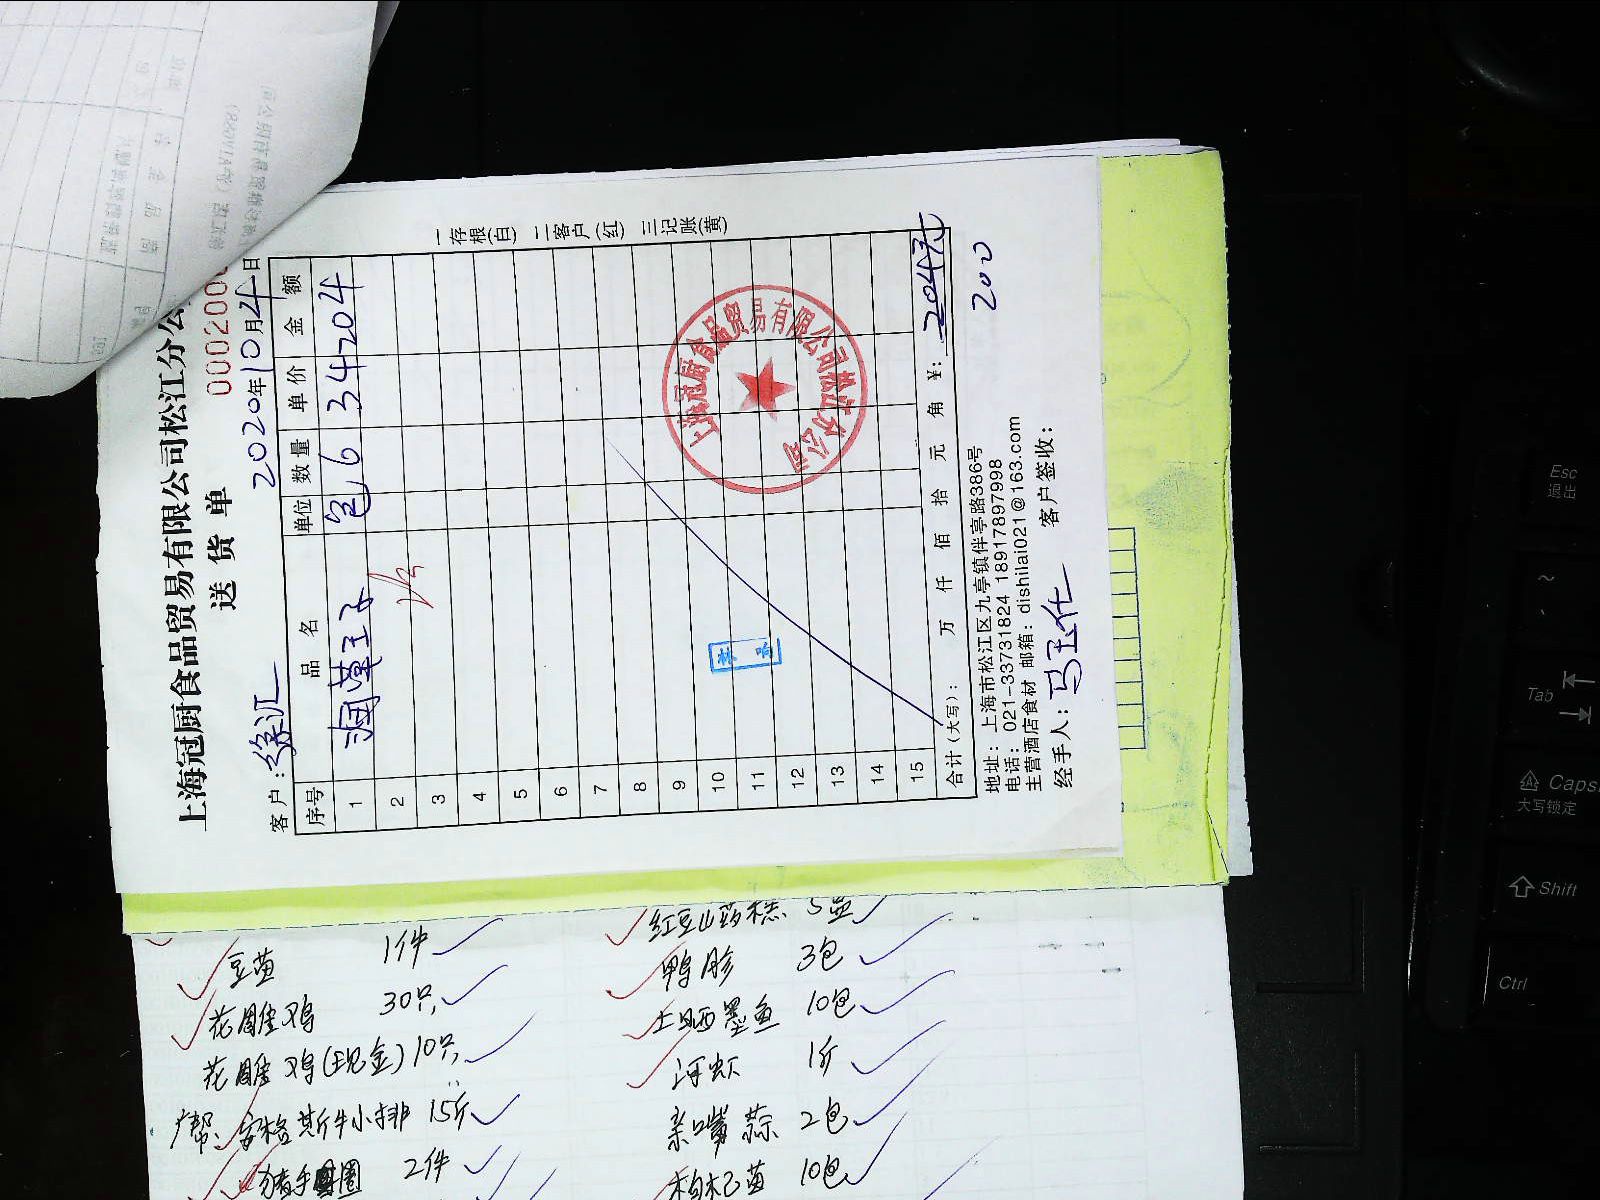 上海冠厨食品贸易有限公司松江分公
送货单
0002000
客户:徐汇
2020年10月4日
序号 品名 单位 数量 单价 金额
1 包 6 34 204
2
3
4
5
6
7
8
9
10
11
12
13
14
15
合计(大写): 万 仟 佰 拾 元 角 ¥: 204元
200
地址:上海市松江区九亭镇伴亭路386号
电话:021-33731824 18917897998
主营酒店食材 邮箱:dishilai021@163.com
经手人: 客户签收:
一存根(白) 二客户(红) 三记账(黄)
上海冠厨食品贸易有限公司松江分公司
豆苗 1件
花雕鸡 30只
花雕鸡(现金) 10只
安格斯牛小排 15斤
2件
红豆山药糕 5盒
鸭胗 3包
土晒墨鱼 10包
河虾 1斤
亲嘴蒜 2包
枸杞苗 10包
Esc
退出
~
Tab
Caps
大写锁定
Shift
Ctrl